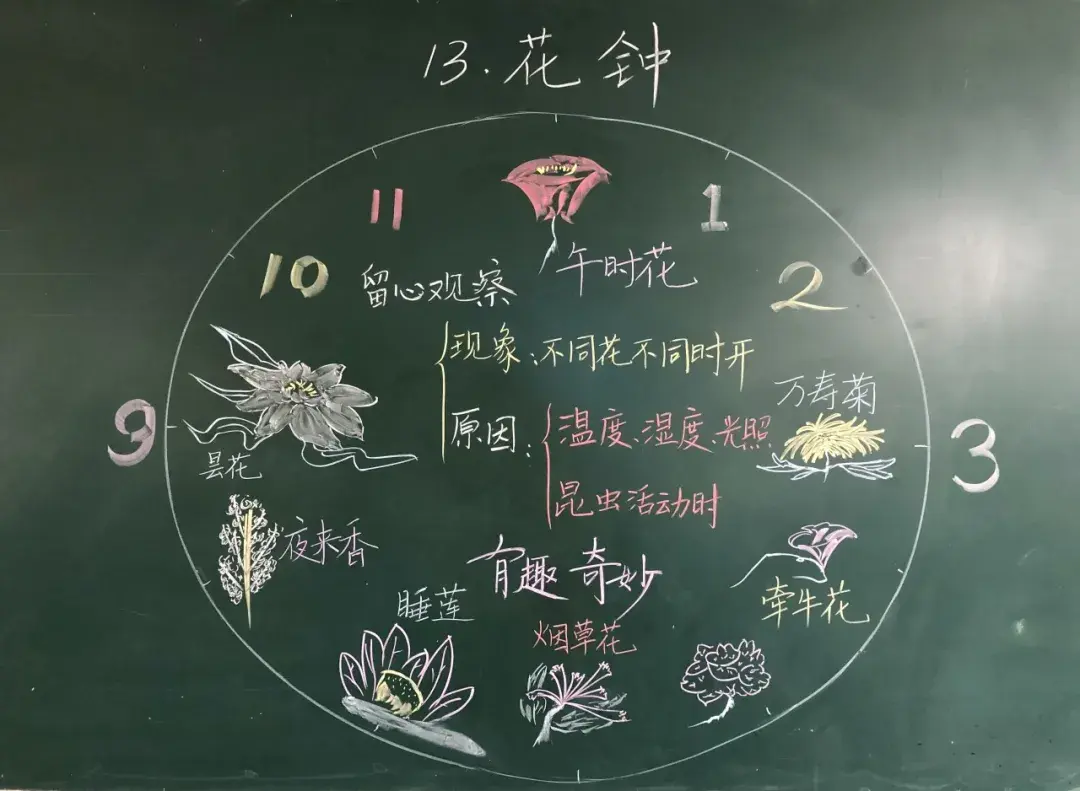 13.花钟
11
1
10
2
留心观察
午时花
现象:不同花不同时开
原因:
温度、湿度、光照
昆虫活动时
万寿菊
9
3
昙花
夜来香
有趣 奇妙
睡莲
烟草花
牵牛花